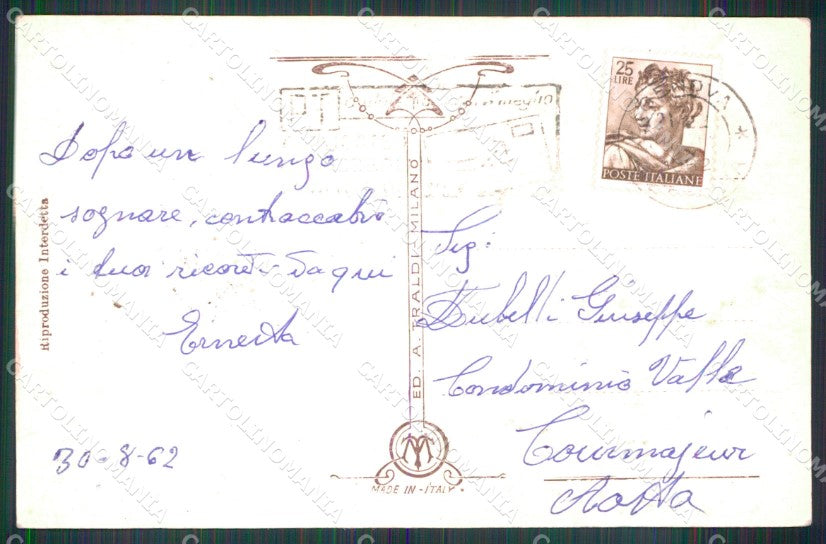 Dopo un lungo
sognare, contraccabio
i tuoi ricordi da qui
Ernesta
30-8-62
Riproduzione Interdetta
ED. A. TRALDI - MILANO
MADE IN - ITALY
25
LIRE
POSTE ITALIANE
Sig:
Giuseppe
Condominio Valle
Courmajeur
Aosta
CARTOLINOMANIA